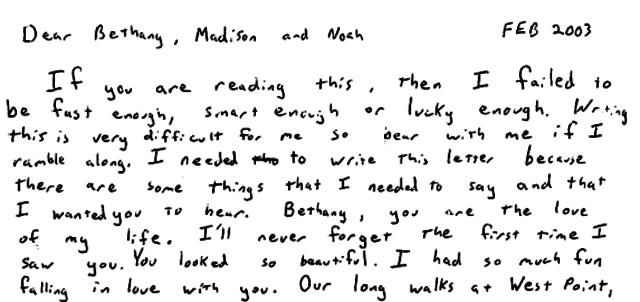 Dear Bethany, Madison and Noah FEB 2003
If you are reading this, then I failed to
be fast enough, smart enough or lucky enough. Writing
this is very difficult for me so bear with me if I
ramble along. I needed to write this letter because
there are some things that I needed to say and that
I wanted you to hear. Bethany, you are the love
of my life. I'll never forget the first time I
saw you. You looked so beautiful. I had so much fun
falling in love with you. Our long walks at West Point,